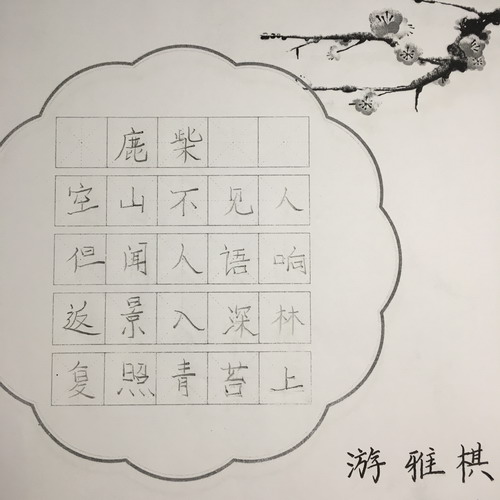 鹿柴
空山不见人
但闻人语响
返景入深林
复照青苔上
游雅棋